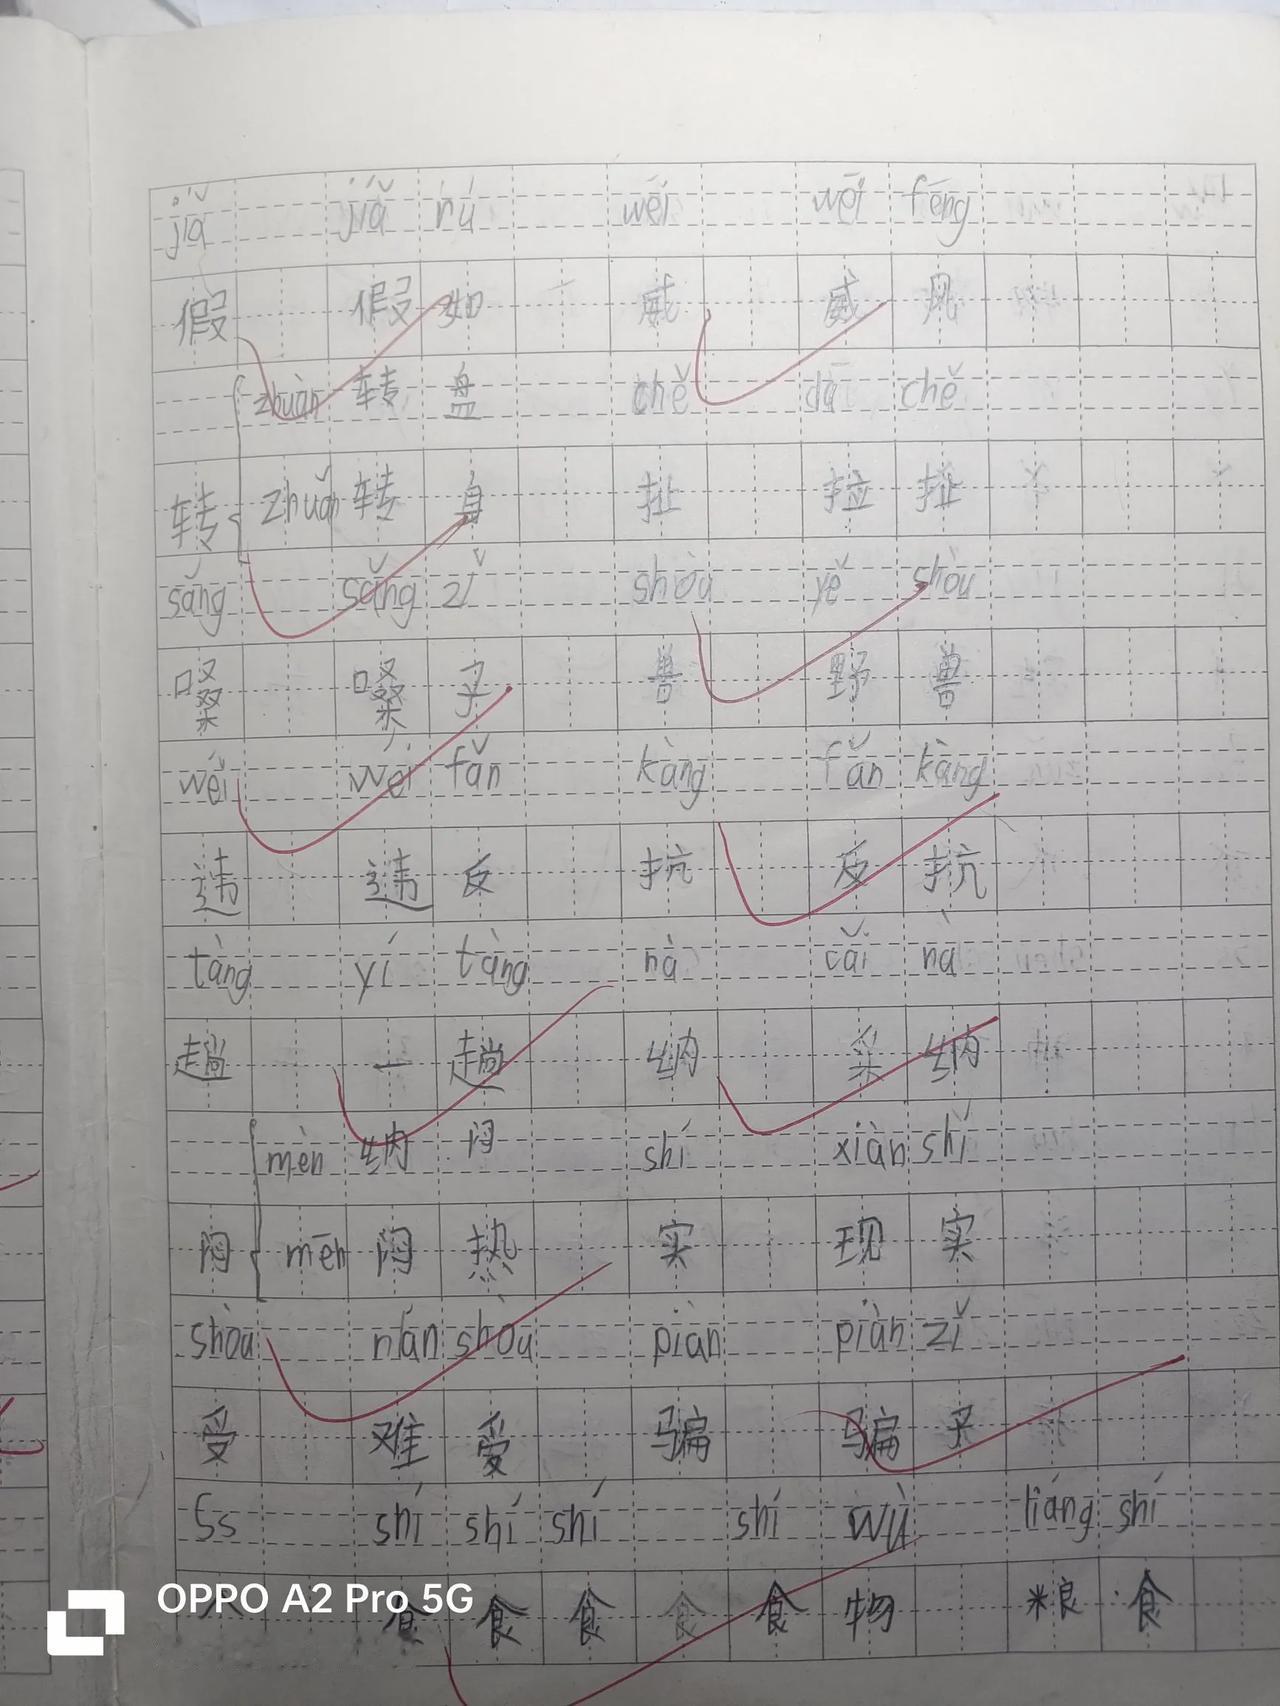 jiǎ jiǎ rú wēi wēi fēng
假 假如 威 威风
zhuàn 转盘 chě dā chě
转 zhuǎn 转身 扯 拉扯
sǎng sǎng zǐ shòu yě shòu
嗓 嗓子 兽 野兽
wéi wéi fǎn kàng fǎn kàng
违 违反 抗 反抗
tàng yí tàng nà cǎi nà
趟 一趟 纳 采纳
mèn 纳闷 shí xiàn shí
闷 mēn 闷热 实 现实
shòu nán shòu piàn piàn zǐ
受 难受 骗 骗子
5s shí shí shí shí wù liáng shí
食 食 食 食 食物 粮食
OPPO A2 Pro 5G